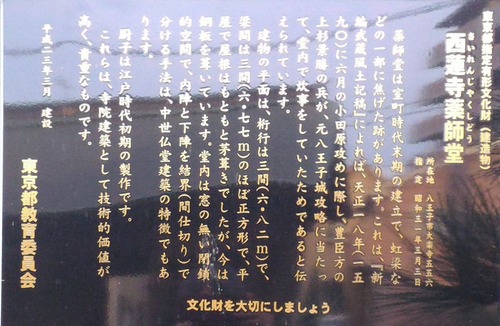 東京都指定有形文化財（建造物）
さいれんじやくしどう
西蓮寺薬師堂
所在地 八王子市大楽寺五五六
指定 昭和三一年三月三日
薬師堂は室町時代末期の建立で、虹梁な
どの一部に焦げた跡があります。これは、『新
編武蔵風土記稿』によれば、天正一八年（一五
九〇）に六月の小田原攻めに際し、豊臣方の
上杉景勝の兵が、元八王子城攻略に当たっ
て、堂内で炊事をしていたためであると伝
えられています。
建物の平面は、桁行は三間（六・八二ｍ）で、
梁間は三間（六・七七ｍ）のほぼ正方形で、平
屋で屋根はもともと茅葺きでしたが、今は
銅板を葺いています。堂内は窓の無い閉鎖
的空間で、内陣と下陣を結界（間仕切り）で
分ける手法は、中世仏堂建築の特徴でもあ
ります。
厨子は江戸時代初期の製作です。
これらは、寺院建築として技術的価値が
高く、貴重なものです。
平成二三年三月 建設
東京都教育委員会
文化財を大切にしましょう